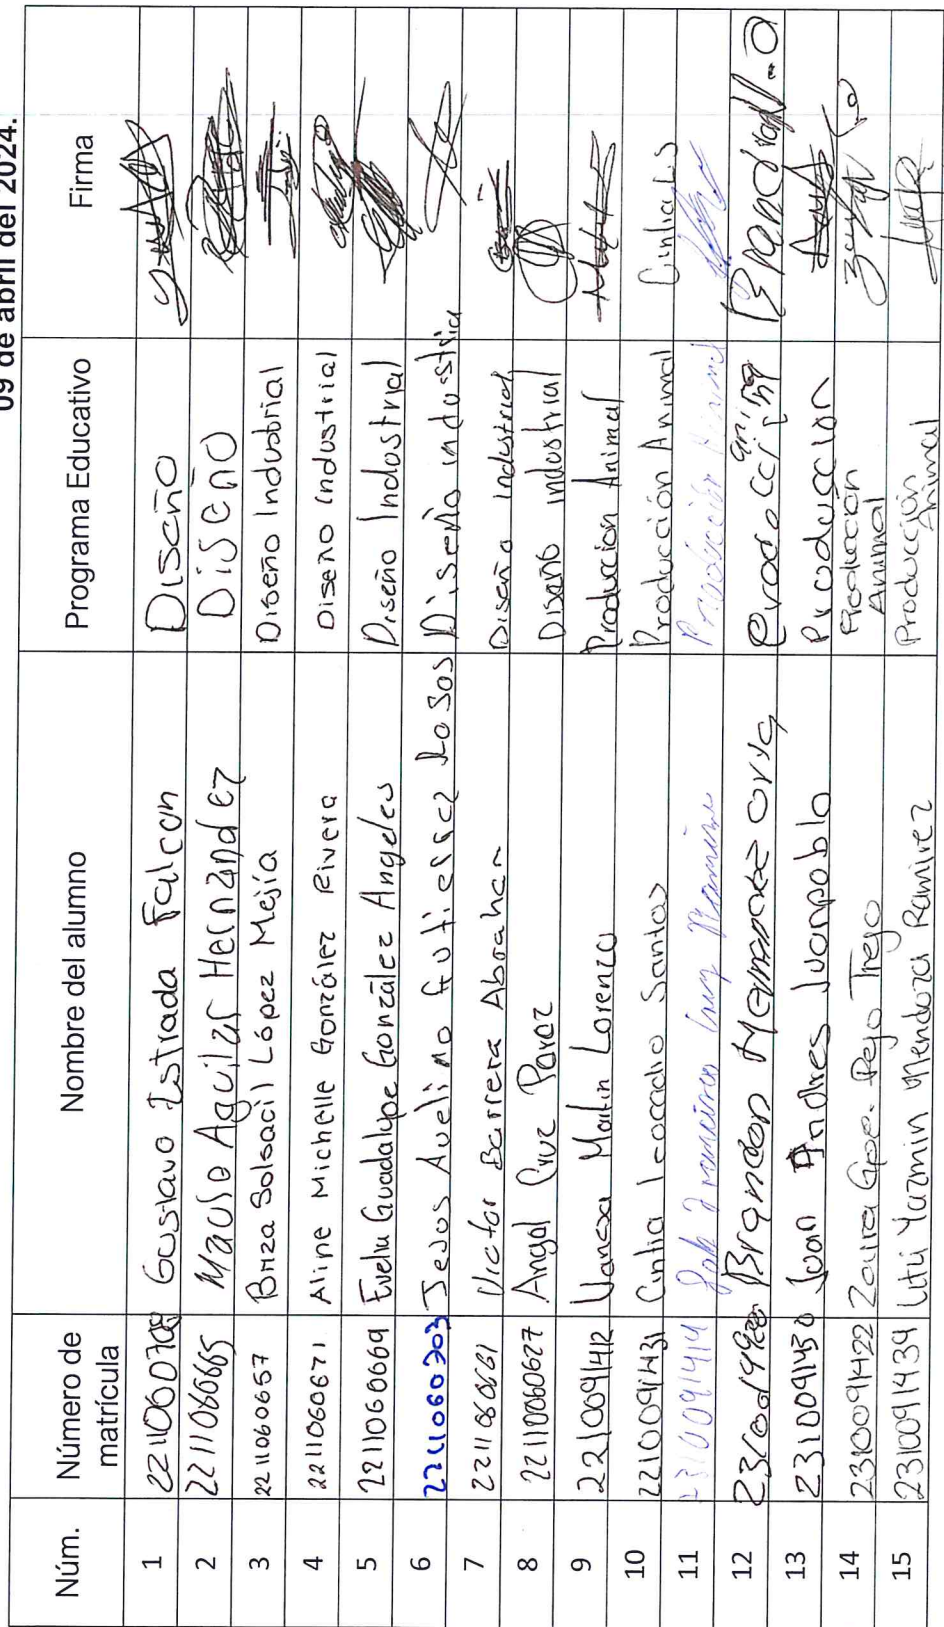 09 de abril del 2024.
Núm. Número de matrícula Nombre del alumno Programa Educativo Firma
1 22110600708 Gustavo Estrada Falcon Diseño
2 2211060665 Mauso Aguilar Hernández Diseño
3 2211060657 Briza Solsacil López Mejía Diseño Industrial
4 2211060671 Aline Michelle González Rivera Diseño industrial
5 2211060669 Evelin Guadalupe González Angeles Diseño Industrial
6 2211060703 Jesus Avelino Gutierrez Rosas Diseño industrial
7 2211060661 Victor Barrera Abraham Diseño industrial
8 22110060627 Angel Cruz Perez Diseño industrial
9 2210091412 Vanesa Martin Lorenzo Produccion Animal
10 2210091431 Cintia Leocadio Santos Producción Animal Cinthia L S
11 2310091414 Cruz Ramirez Producción Animal
12 Brandon Hernandez Producci Brandon
13 2310091430 Juan Andres Juanpablo Producción
14 2310091422 Zaira Gpe. Pejo Trejo Producción Animal
15 2310091439 Litzi Yazmin Mendoza Ramirez Producción Animal